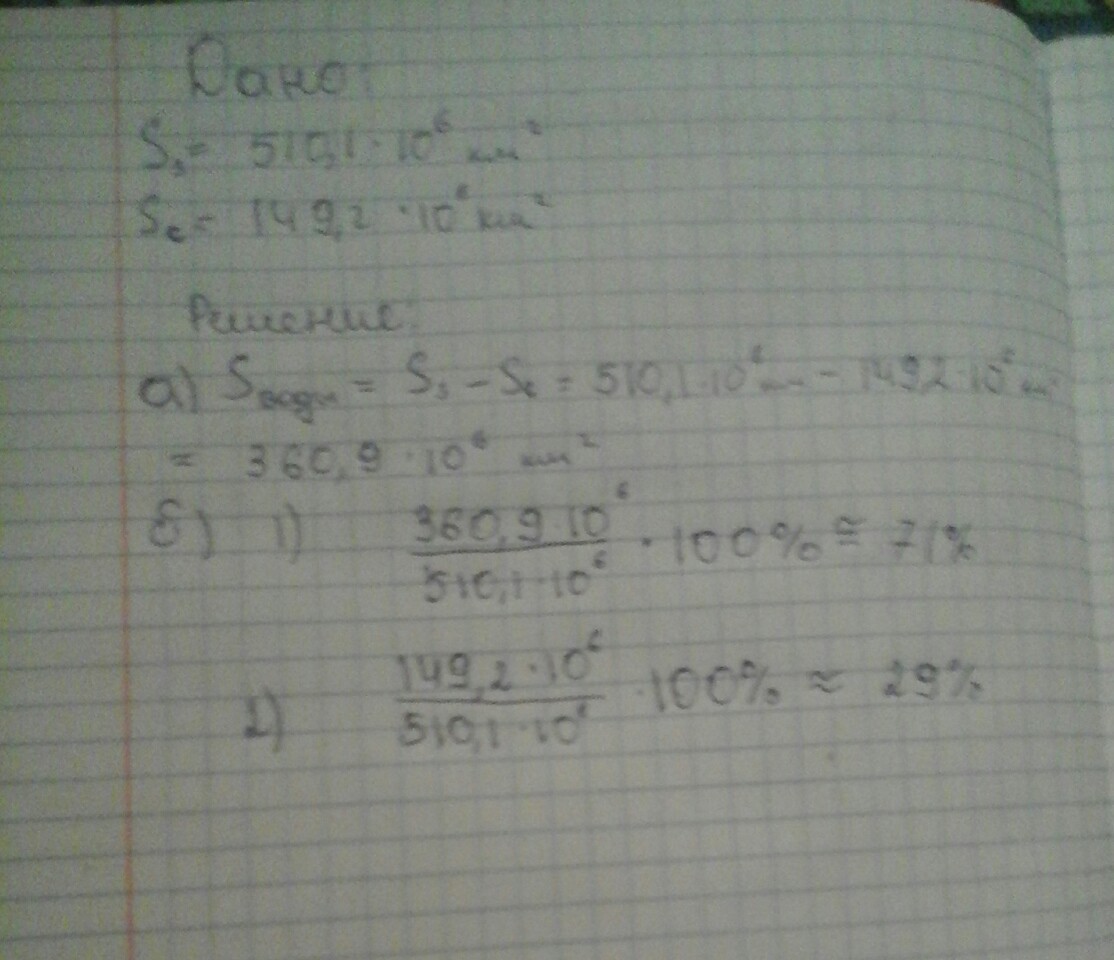 Дано:
Sз = 510,1 · 10⁶ км²
Sс = 149,2 · 10⁶ км²
Решение:
а) Sводы = Sз – Sс = 510,1·10⁶ км – 149,2·10⁶ км²
= 360,9 · 10⁶ км²
б) 1) 360,9·10⁶ / 510,1·10⁶ · 100% ≅ 71%
2) 149,2·10⁶ / 510,1·10⁶ · 100% ≈ 29%